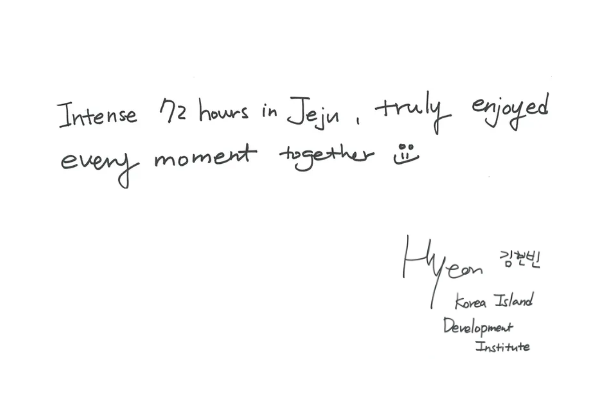 Intense 72 hours in Jeju, truly enjoyed
every moment together
Hyeon 김현빈
Korea Island
Development
Institute